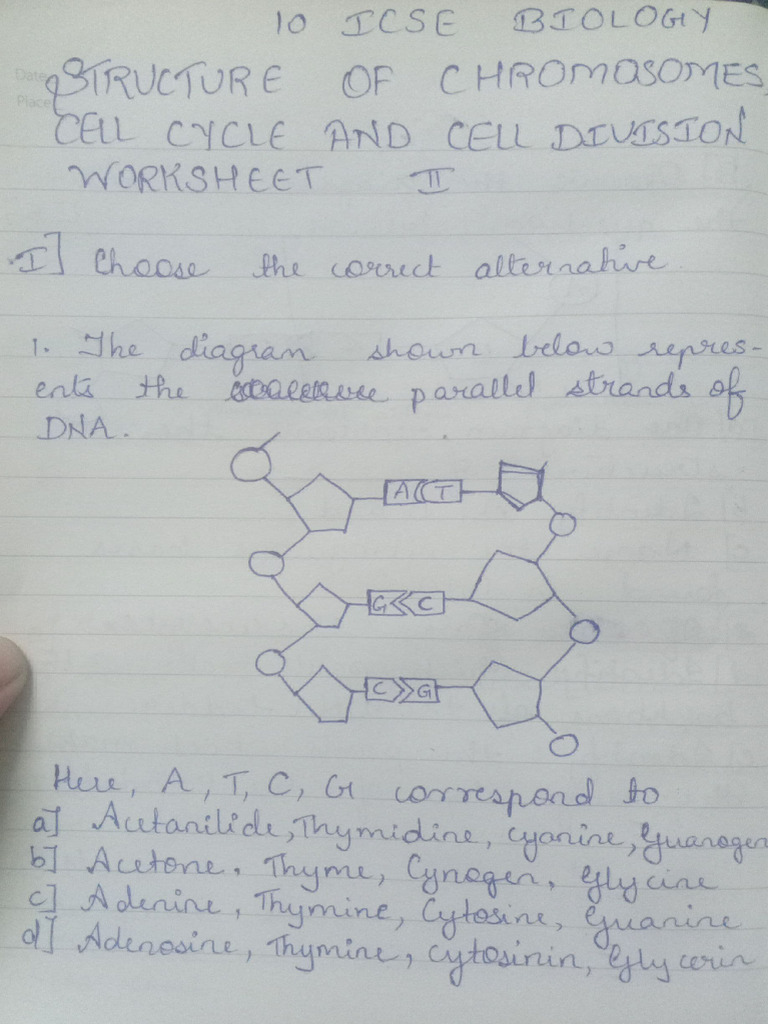 10 ICSE BIOLOGY
Date
Place
STRUCTURE OF CHROMOSOMES,
CELL CYCLE AND CELL DIVISION
WORKSHEET II
I] Choose the correct alternative
1. The diagram shown below repres-
ents the parallel strands of
DNA.
A T
G C
C G
Here, A, T, C, G correspond to
a] Acetanilide, Thymidine, cyanine, Guanogen
b] Acetone, Thyme, Cynogen, Glycine
c] Adenine, Thymine, Cytosine, Guanine
d] Adenosine, Thymine, cytosinin, Glycerin